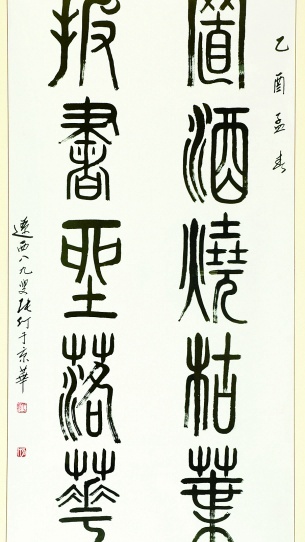 乙酉孟春
置酒燒枯葉
披書坐落華
遼西八九叟張仃于京華